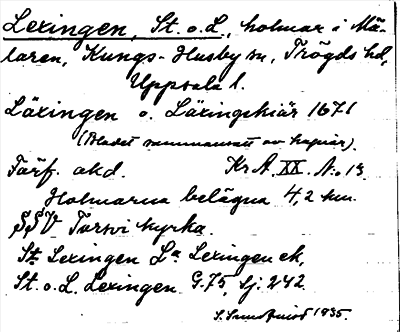 Lexingen, St. o. L., holmar i Mä-
laren, Kungs-Husby sn, Trögds hd,
Uppsala l.
Läxingen o. Läxingskiär 1671
(Bladet sammansatt av kopior).
Färf. akd. Kr A. XX. No 13.
Holmarna belägna 4,2 km.
SSV Torsvi kyrka.
St. Lexingen La Lexingen ek,
St. o. L. Lexingen G.75, Sj. 242.
1935.